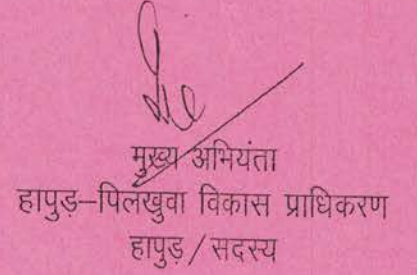 मुख्य अभियंता
हापुड़–पिलखुवा विकास प्राधिकरण
हापुड़/सदस्य